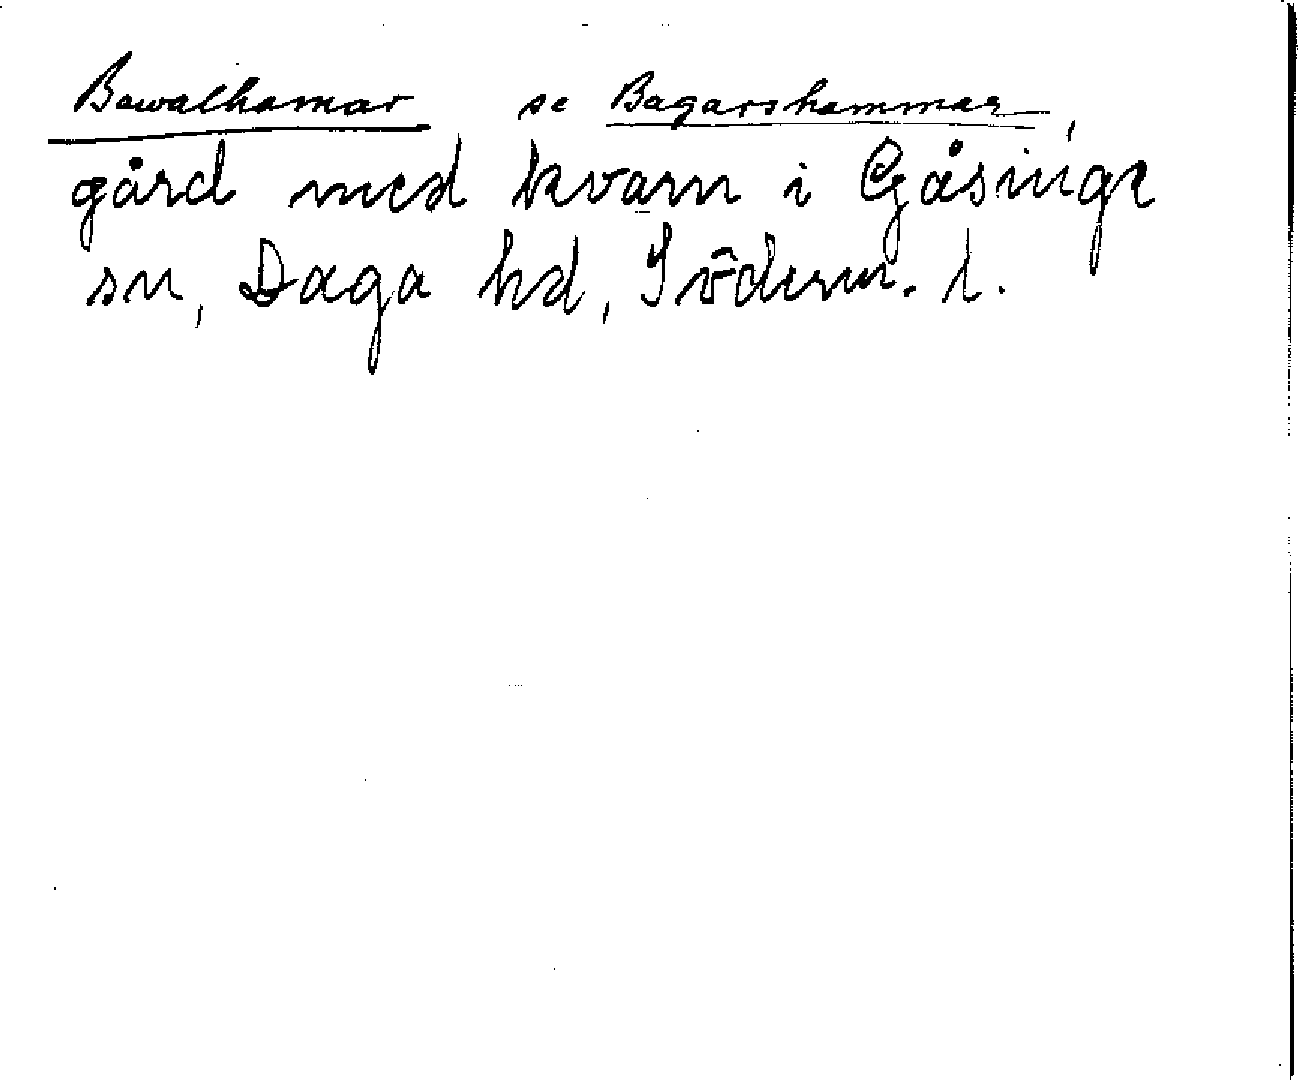 Bawalhamar se Bagarshammar,
gård med kvarn i Gåsinge
sn, Daga hd, Söderm. l.